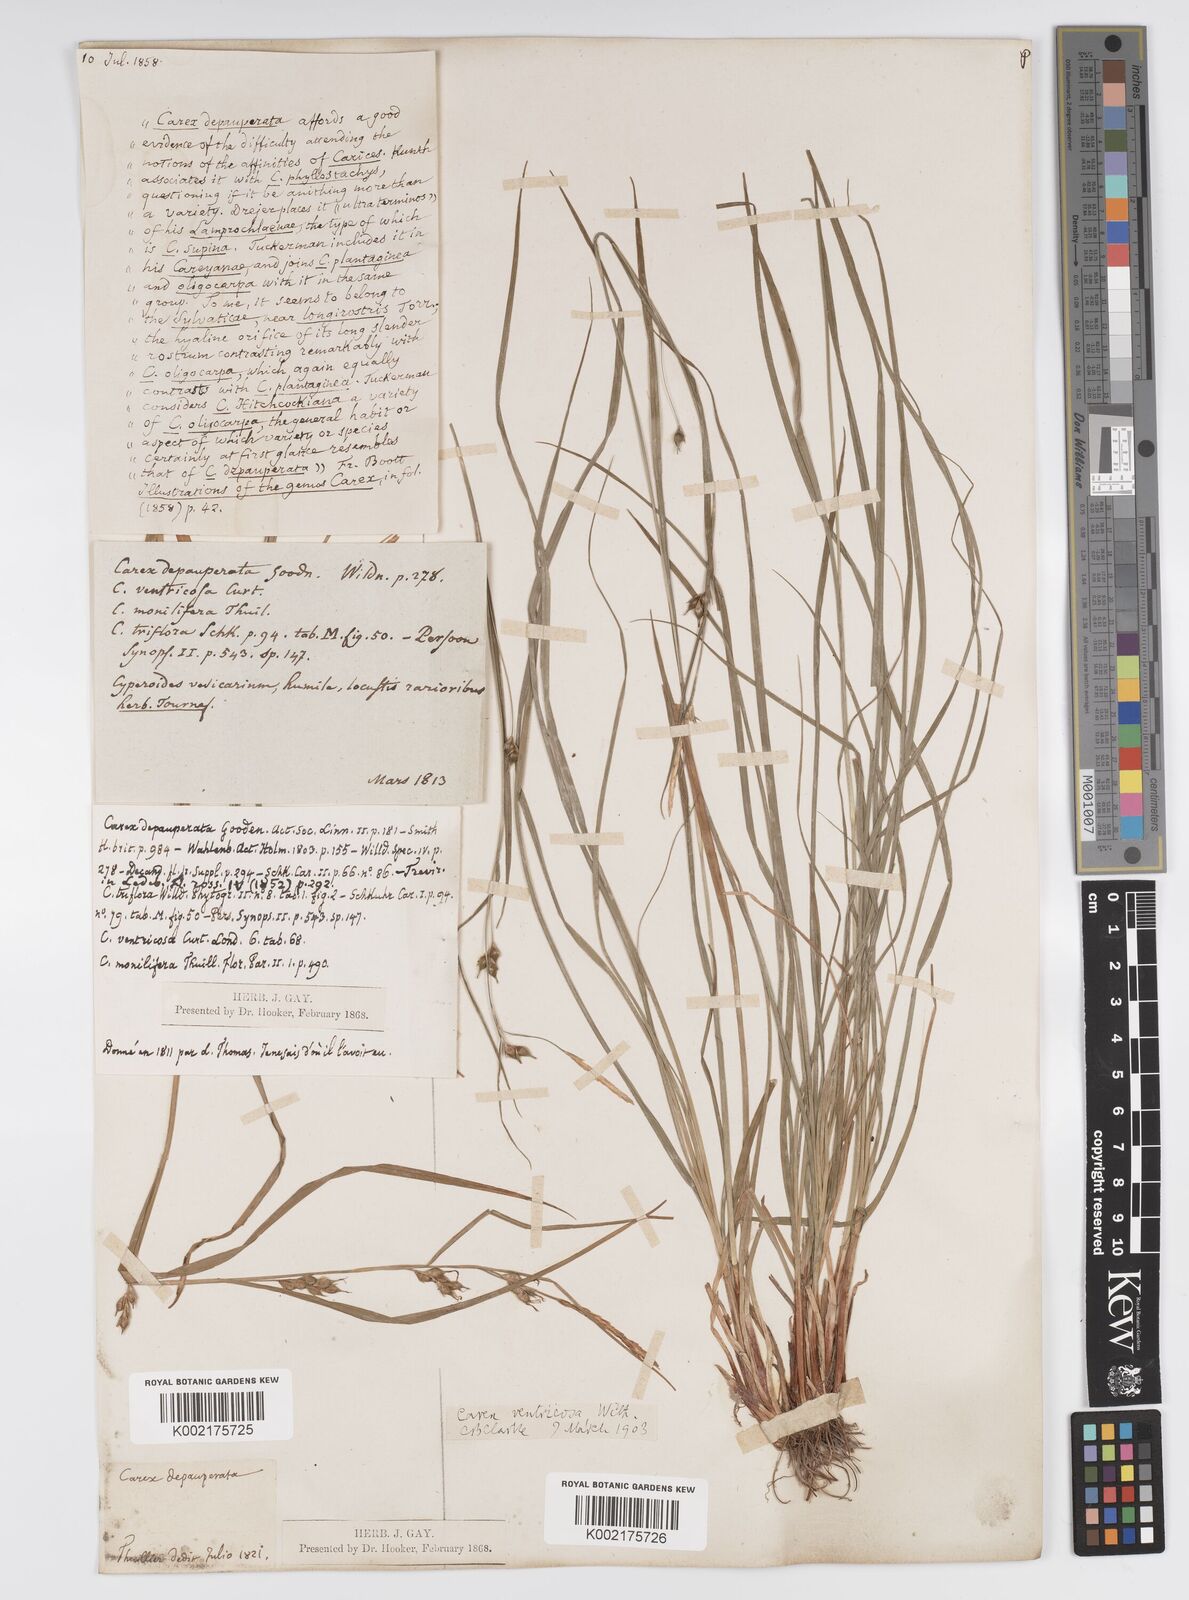 10 Jul. 1858.
" Carex depauperata affords a good
" evidence of the difficulty attending the
" notions of the affinities of Carices. Kunth
" associates it with C. phyllostachys,
" questioning if it be anithing more than
" a variety. Drejer places it ("ultra terminos")
" of his Lamprochlaenae, the type of which
" is C. supina. Tuckerman includes it in
" his Careyanae, and joins C. plantaginea
" and oligocarpa with it in the same
" group. To me, it seems to belong to
" the Sylvaticae, near longirostris Torr.;
" the hyaline orifice of its long slender
" rostrum contrasting remarkably with
" C. oligocarpa, which again equally
" contrasts with C. plantaginea. Tuckerman
" considers C. Hitchcockiana a variety
" of C. oligocarpa, the general habit or
" aspect of which variety or species
" certainly at first glance resembles
" that of C. depauperata )) Fr. Boott
Illustrations of the genus Carex, in fol.
(1858) p. 42.
Carex depauperata Goodn. Willd. p. 278.
C. ventricosa Curt.
C. monilifera Thuil.
C. triflora Schk. p. 94. tab. M. fig. 50. - Persoon
Synops. II. p. 543. sp. 147.
Cyperoides vesicarium, humile, locustis rarioribus
herb. Tournef.
Mars 1813
Carex depauperata Gooden. Act. Soc. Linn. II. p. 181 - Smith
fl. brit. p. 984 - Wahlenb. Act. Holm. 1803. p. 155 - Willd. spec. IV. p.
278 - Decand. fl. fr. Suppl. p. 294 - Schk. Car. II. p. 66. n° 86. - Trevir.
in Ledeb. fl. ross. IV (1852) p. 292.
C. triflora Willd. Phytogr. II. n° 8. tab. 1. fig. 2 - Schkuhr Car. I. p. 94.
n° 79. tab. M. fig. 50 - Pers. Synops. II. p. 543. sp. 147.
C. ventricosa Curt. Lond. 6. tab. 68.
C. monilifera Thuill. Flor. Par. II. 1. p. 490.
HERB. J. GAY.
Presented by Dr. Hooker, February 1868.
Donné en 1811 par d. Thomas. Je ne sais d'où il l'avoit eu.
ROYAL BOTANIC GARDENS KEW
K002175725
Carex depauperata
Thuillier dedit Julio 1821.
HERB. J. GAY.
Presented by Dr. Hooker, February 1868.
Carex ventricosa, With.
CBClarke 9 March 1903
ROYAL BOTANIC GARDENS KEW
K002175726
Density
Don Williams
M001007
centimeters
cm
0 1 2 3 4 5 6 7 8 9 10
copyright reserved
Royal Botanic Gardens
Kew